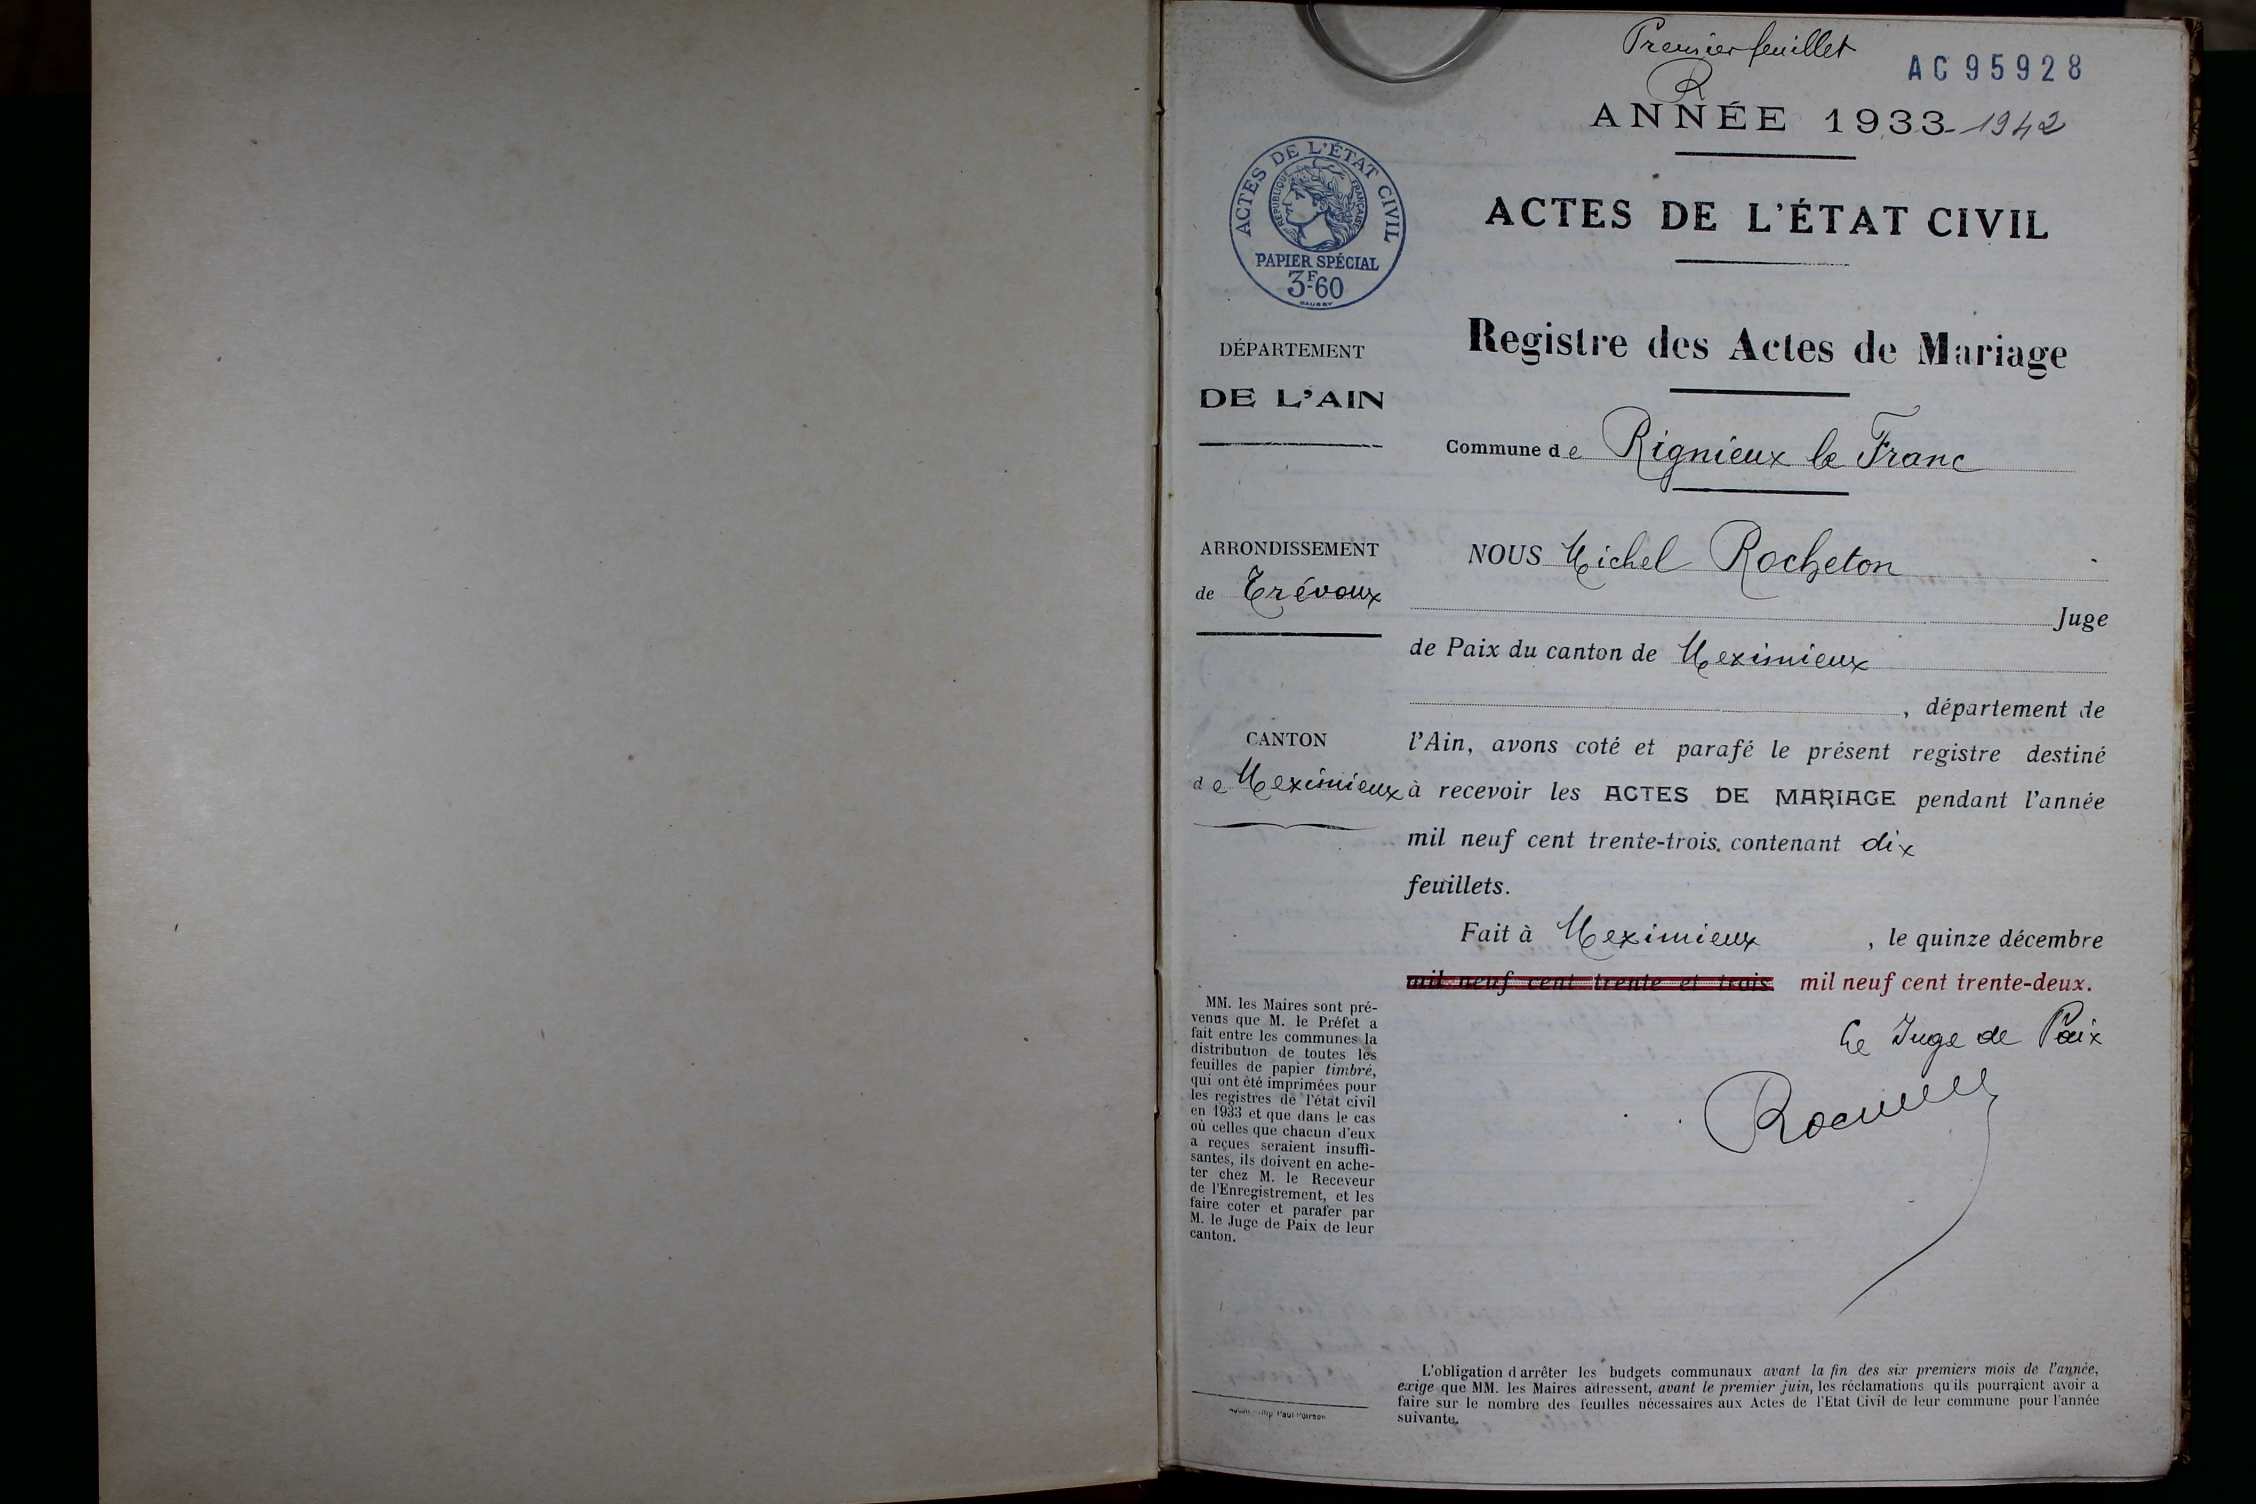 Premier feuillet
R
AC 95928
ANNÉE 1933-1942
ACTES DE L'ÉTAT CIVIL
RÉPUBLIQUE FRANÇAISE
PAPIER SPÉCIAL
3F60
ACTES DE L'ÉTAT CIVIL
Registre des Actes de Mariage
Commune de Rignieux le Franc
DÉPARTEMENT
DE L'AIN
ARRONDISSEMENT
de Trévoux
CANTON
de Meximieux
MM. les Maires sont pré-
venus que M. le Préfet a
fait entre les communes la
distribution de toutes les
feuilles de papier timbré,
qui ont été imprimées pour
les registres de l'état civil
en 1933 et que dans le cas
où celles que chacun d'eux
a reçues seraient insuffi-
santes, ils doivent en ache-
ter chez M. le Receveur
de l'Enregistrement, et les
faire coter et parafer par
M. le Juge de Paix de leur
canton.
NOUS Michel Rocheton
Juge
de Paix du canton de Meximieux
, département de
l'Ain, avons coté et parafé le présent registre destiné
à recevoir les ACTES DE MARIAGE pendant l'année
mil neuf cent trente-trois, contenant dix
feuillets.
Fait à Meximieux , le quinze décembre
mil neuf cent trente et trois mil neuf cent trente-deux.
Le Juge de Paix
L'obligation d'arrêter les budgets communaux avant la fin des six premiers mois de l'année,
exige que MM. les Maires adressent, avant le premier juin, les réclamations qu'ils pourraient avoir à
faire sur le nombre des feuilles nécessaires aux Actes de l'Etat Civil de leur commune pour l'année
suivante.